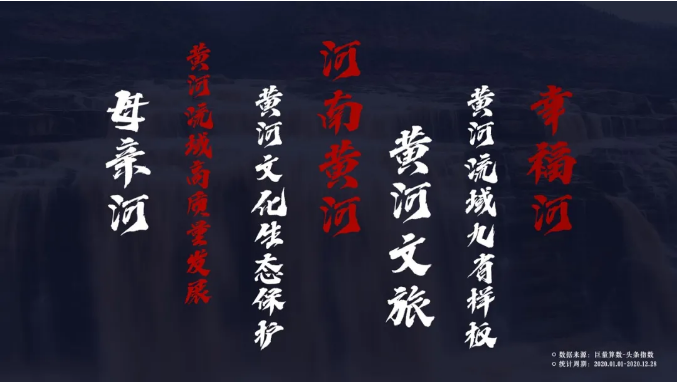 母亲河
黄河流域高质量发展
黄河文化生态保护
河南黄河
黄河文旅
黄河流域九省样板
幸福河
数据来源：巨量算数-头条指数
统计周期：2020.01.01-2020.12.28